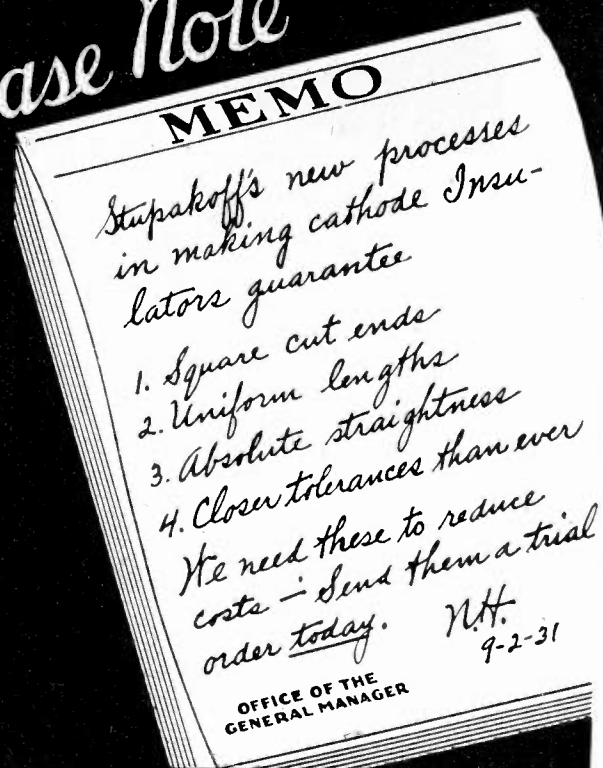 ase Note
MEMO
Stupakoff's new processes
in making cathode Insu-
lators guarantee
1. Square cut ends
2. Uniform lengths
3. Absolute straightness
4. Closer tolerances than ever
We need these to reduce
costs — Send them a trial
order today. N.H.
9-2-31
OFFICE OF THE
GENERAL MANAGER